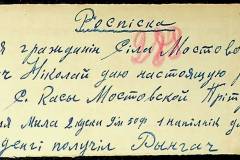 Роспіска
гражданин Сіла Мостово
Николай даю настоящую
280
с. Касы Мостовской Пріт
Мила 2 куски Ям 50ф. 1 напілнік
денгі получіл Рынгач